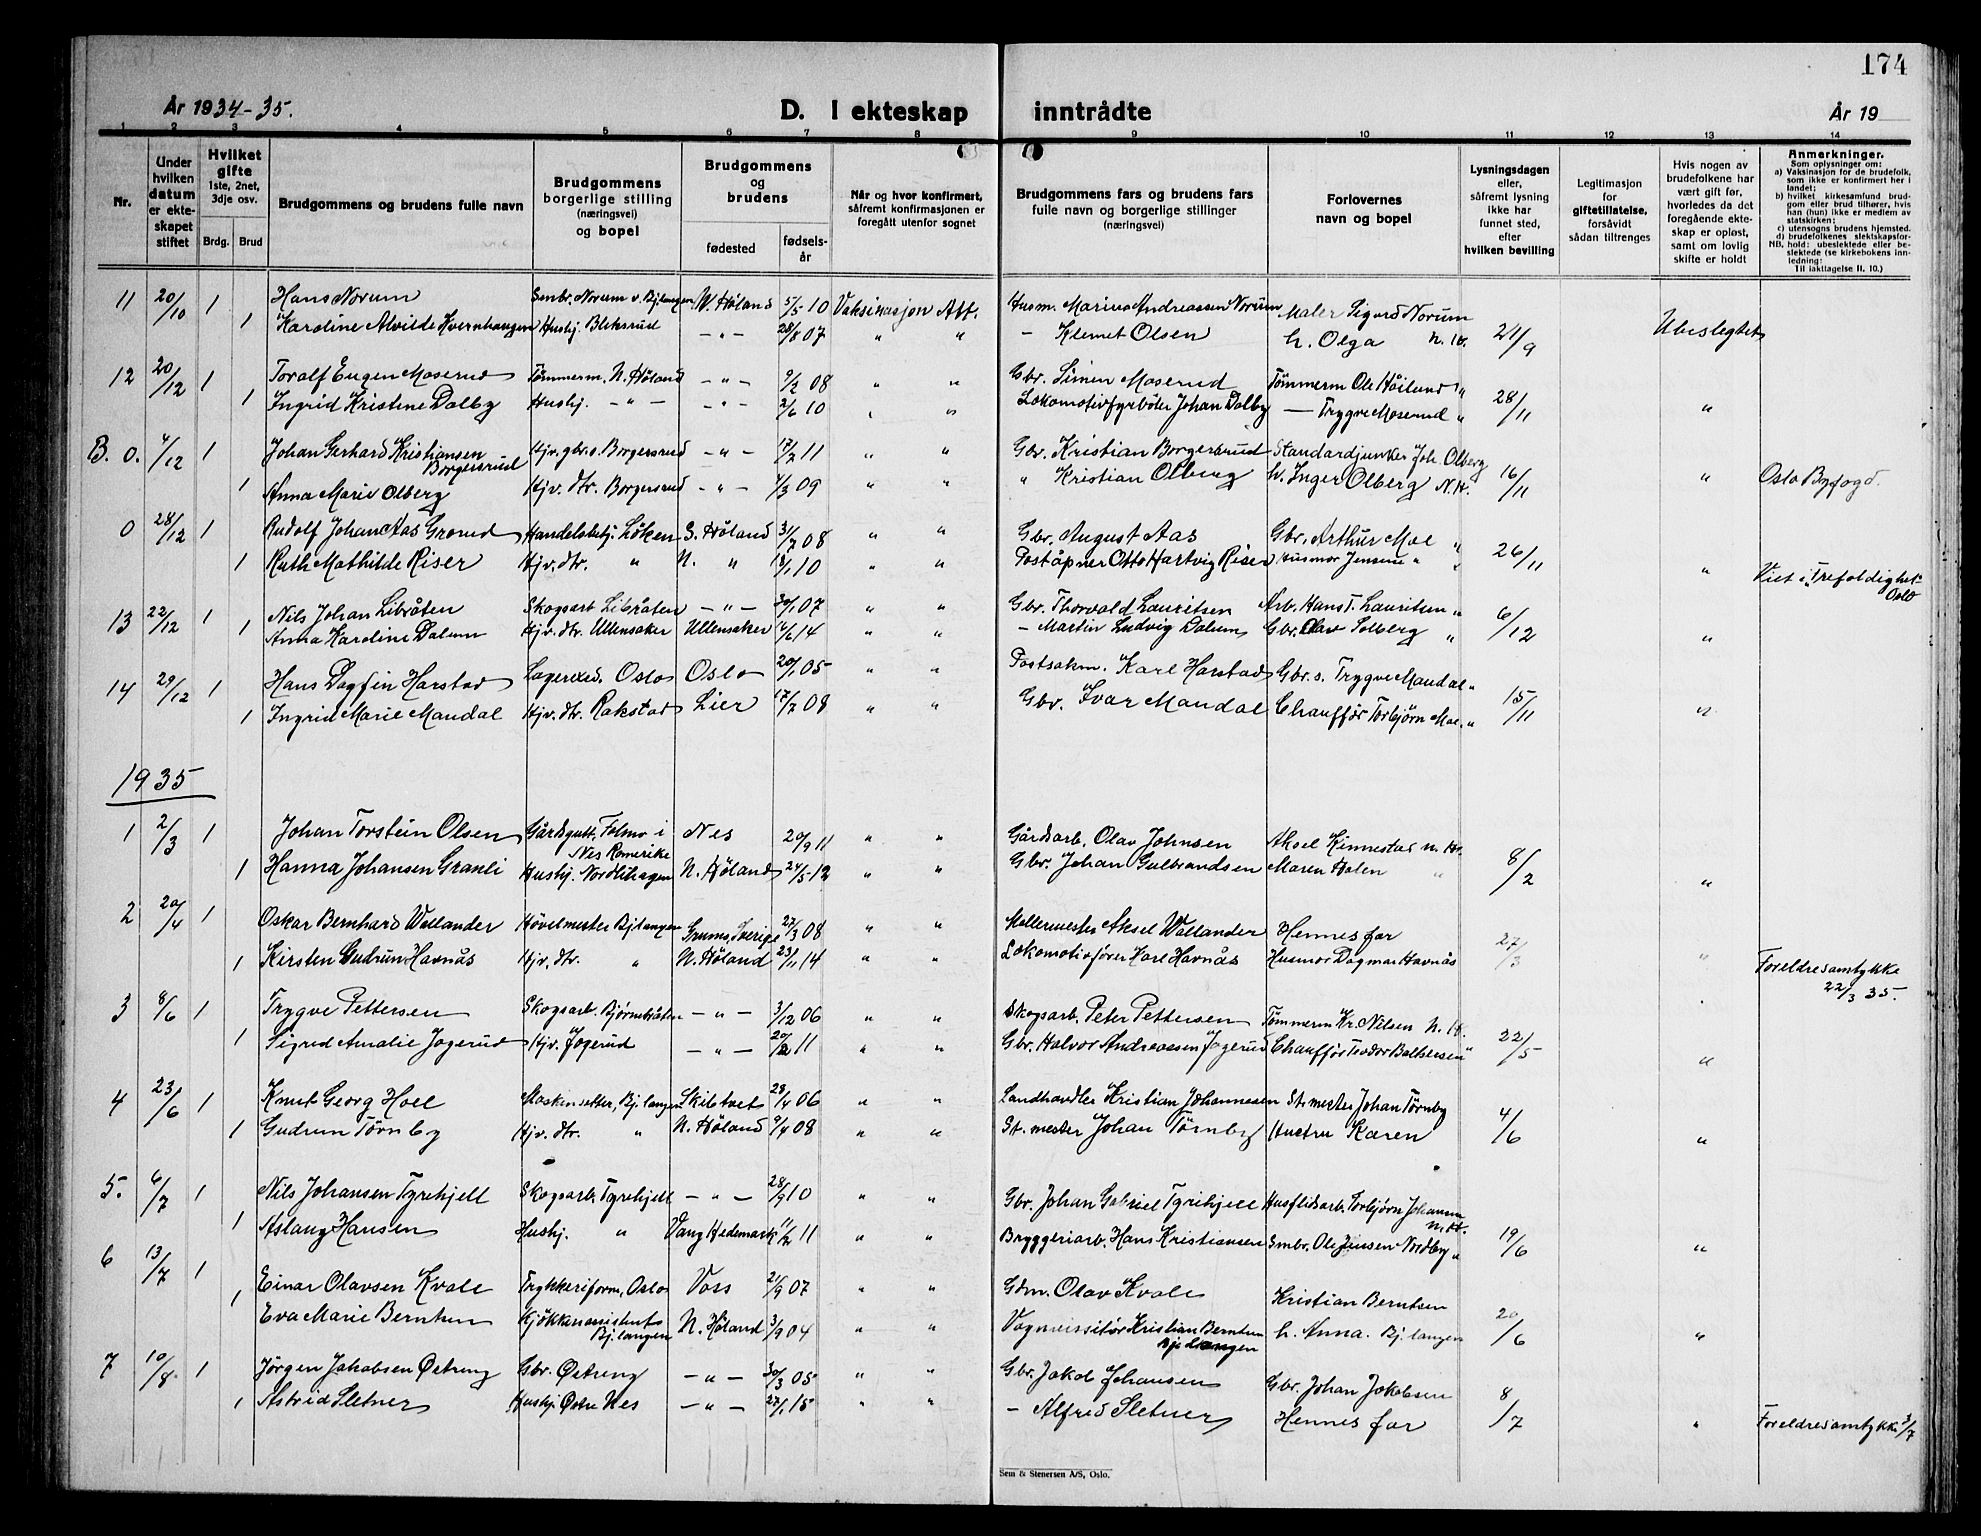 174
År 1934-35.
D. I ekteskap inntrådte
År 19
1 2 3 4 5 6 7 8 9 10 11 12 13 14
Nr.
Under hvilken datum er ekteskapet stiftet
Hvilket gifte 1ste, 2net, 3dje osv.
Brdg. Brud
Brudgommens og brudens fulle navn
Brudgommens borgerlige stilling (næringsvei) og bopel
Brudgommens og brudens
fødested
fødselsår
Når og hvor konfirmert, såfremt konfirmasjonen er foregått utenfor sognet
Brudgommens fars og brudens fars fulle navn og borgerlige stillinger (næringsvei)
Forlovernes navn og bopel
Lysningsdagen eller, såfremt lysning ikke har funnet sted, efter hvilken bevilling
Legitimasjon for giftetillatelse, forsåvidt sådan tiltrenges
Hvis nogen av brudefolkene har vært gift før, hvorledes da det foregående ekteskap er opløst, samt om lovlig skifte er holdt
Anmerkninger.
Som oplysninger om:
a) Vaksinasjon for de brudefolk, som ikke er konfirmert her i landet;
b) hvilket kirkesamfund brudgom eller brud tilhører, hvis han (hun) ikke er medlem av statskirken;
c) utensogns brudens hjemsted.
d) brudefolkenes slektskapsforhold: ubeslektede eller beslektede (se kirkebokens innledning:
NB.
Til iakttagelse II. 10.)
11 20/10 1 Hans Norum Smbr. Norum v. Bjlangen N. Høland 5/5 10 Vaksinasjon Att. Husm. Marius Andreassen Norum Maler Sigurd Norum 21/9 Ubeslegtet
1 Karoline Alvilde Kvernhaugen Hushj. Bliksrud - " - 28/8 07 " " - Klemet Olsen h. Olga N. H.
12 20/12 1 Toralf Eugen Moserud Tømmerm. N. Høland - " - 9/2 08 " " Gbr. Simen Moserud Tømmerm Ole Høiland " 28/11 "
1 Ingrid Kristine Dalby Hushj. - " - - " - 2/6 10 " " Lokomotivfyrbøter Johan Dalby - Trygve Moserud "
B. 0. 4/12 1 Johan Gerhard Kristiansen Borgersrud Hjv. gbr.s. Borgersrud - " - 17/2 11 " " Gbr. Kristian Borgersrud Standardjunker Joh. Olberg 16/11 " Oslo Byfogd.
1 Anna Marie Olberg Hjv. dtr. Borgersrud - " - 4/3 09 " " " Kristian Olberg h. Inger Olberg N. H.
0 28/12 1 Rudolf Johan Aas Grorud Handelsbetj. Løken S. Høland 31/7 08 " " Gbr. August Aas Gbr. Arthur Moe " 26/11
1 Ruth Mathilde Riser Hjv. dtr. " N. " 18/1 10 " " Poståpner Otto Hartvig Riser Husmor Jensine " " " Viet i Trefoldighet Oslo
13 22/12 1 Nils Johan Libråten Skogsarb Libråten - " - 30/1 07 " " Gbr. Thorvald Lauritsen Arb. Hans T. Lauritsen " 6/12
1 Anna Karoline Dalum Hjv. dtr. Ullensaker Ullensaker 14/6 14 " " - Martin Ludvig Dalum Gbr. Olav Solberg " "
14 29/12 1 Hans Dagfin Harstad Lagerexd. Oslo Oslo 20/1 05 " " Postsakm. Karl Harstad Gbr. s. Trygve Mandal " 15/11
1 Ingrid Marie Mandal Hjv. dtr. Rakstad Lier 17/7 08 " " Gbr. Ivar Mandal Chauffør Torbjørn Moe " "
1935
1 2/3 1 Johan Torstein Olsen Gårdsgutt, Folmo i Nes Romerike Nes 20/9 11 " " Gårdsarb. Olav Johnsen Aksel Kinnestad N. H. 8/2
1 Hanna Johansen Granli Hushj. Nordlihagen N. Høland 24/5 12 " " Gbr. Johan Gulbrandsen Maren Holen " "
2 20/4 1 Oskar Bernhard Wallander Høvelmester Bjlangen Grums, Sverige 27/3 08 " " Møllermester Aksel Wallander Hennes far 27/3
1 Kirsten Gudrun Havnås Hjv. dtr. " N. Høland 23/11 14 " " Lokomotivfører Karl Havnås Husmor Dagmar Havnås " Foreldresamtykke 22/3 35.
3 8/6 1 Trygve Pettersen Skogsarb. Bjørnebråten - " - 3/12 06 " " Skogsarb. Peter Pettersen Tømmerm Kr. Nilsen N. H. 22/5
1 Sigrid Amalie Jogerud Hjv. Jogerud - " - 20/2 11 " " Gbr. Halvor Andreassen Jogerud Chauffør Teodor Baltersen " "
4 23/6 1 Knut Georg Hoel Maskinsetter, Bj.langen Skibtvet 28/4 06 " " Landhandler Kristian Johannesen St. mester Johan Tørnby 4/6
1 Gudrun Tørnby Hjv. dtr. " N. Høland 9/4 08 " " St. mester Johan Tørnby Hustru Karen "
5. 6/7 1 Nils Johansen Tyrihjell Skogsarb. Tyrihjell - " - 28/9 10 " " Gbr. Johan Gabriel Tyrihjell Husflidsarb. Torbjørn Johansen N. H. 19/6
1 Aslaug Hansen Hushj. " Vang Hedemark 11/2 11 " " Bryggeriarb. Hans Kristiansen Smbr. Ole Jensen Nordby " "
6 13/7 1 Einar Olavsen Kvale Trykkeriform, Oslo Voss 21/9 07 " " Gdm. Olav Kvale Kristian Berntsen 20/6
1 Eva Marie Berntsen Kjøkkenassistent Bj.langen N. Høland 3/9 04 " " Vognvisitør Kristian Berntsen Bjølangen h. Anna. Bj. langen "
7 10/8 1 Jørgen Jakobsen Østreng Gbr. Østreng - " - 30/3 05 " " Gbr. Jakob Johansen Gbr. Johan Jakobsen 8/7
1 Astrid Sletner Hushj. Østre Nes - " - 27/1 15 " " - Alfred Sletner Hennes far " Foreldresamtykke 3/7
Sem & Stenersen A/S, Oslo.